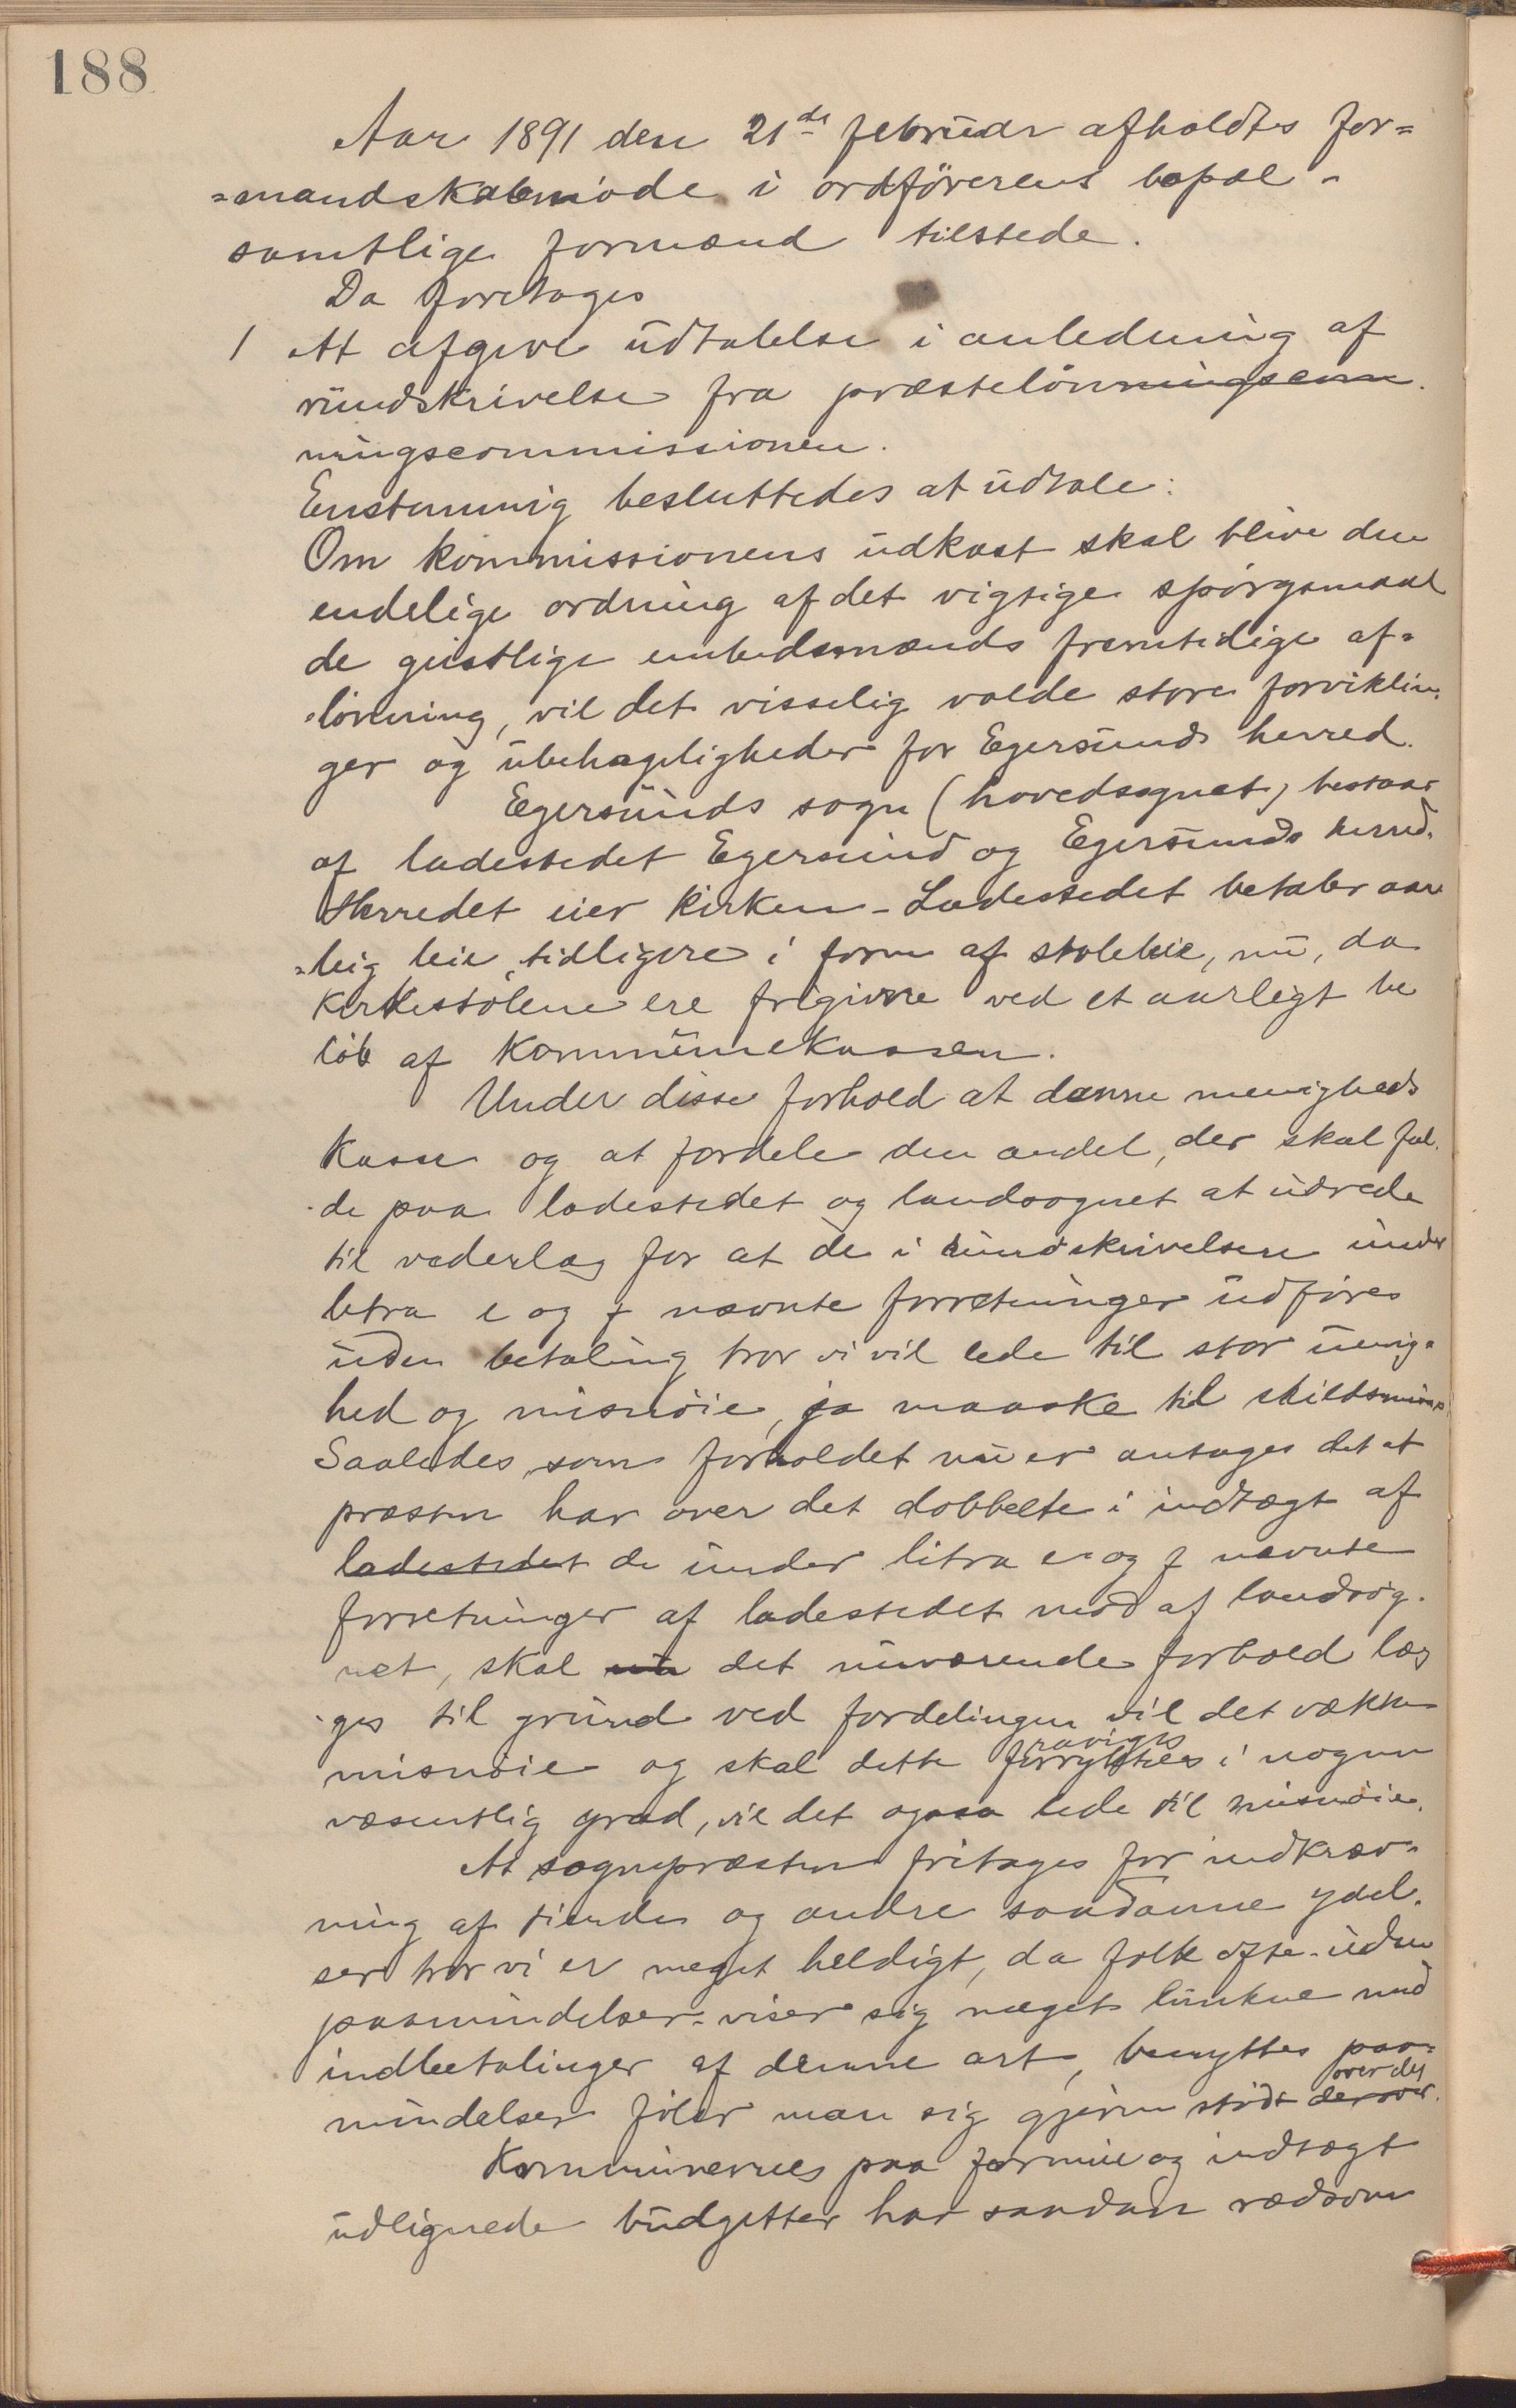 188
Aar 1891 den 21de februar afholdtes for=
=mandskabsmöde i ordförerens bopæl -
samtlige formænd tilstede.
Da foretoges
1 At afgive udtalelse i anledning af
rundskrivelse fra præstelönningscom
ningscommissionen.
Enstemmig besluttedes at udtale:
Om kommissionens udkast skal blive den
endelige ordning af det vigtige spörgsmaal
de geistlige embedsmænds fremtidige af=
lönning, vil det visselig volde store forviklin
ger og ubehageligheder for Egersunds herred.
Egersunds sogn (hovedsognet) bestaar
af ladestedet Egersund og Egersunds herred.
Herredet eier kirken - Ladestedet betaler aar
=lig leie, tidligere i form af stoleleie, nu, da
kirkestolene ere frigivne ved et aarligt be
löb af kommunekassen.
Under disse forhold at danne menigheds
kasse og at fordele den andel, der skal fal
de paa ladestedet og landsognet at udrede
til vederlag for at de i rundskrivelsen under
litra e og f nævnte forretninger udföres
uden betaling tror vi vil lede til stor uenig=
hed og misnöie, ja maaske til skilsmisse.
Saaledes som forholdet nu er antages det at
præsten har over det dobbelte i indtægt af
ladestedet de under litra e og f nævnte
forretninger af ladestedet mod af landsog.
net, skal nu det nuværende forhold læg
ges til grund ved fordelingen vil det vække
raviges
misnöie og skal dette forryktes i nogen
væsentlig grad, vil det ogsaa lede til misnöie.
At sognepræsten fritages for indkræv=
ning af tiende og andre saadanne ydel.
ser tror vi er meget heldigt, da folk ofte uden
paamindelser viser sig meget lunkne med
indbetalinger af denne art, benyttes paa=
over det
mindelser föler man sig gjerne stödt derover.
Kommunernes paa formue og indtægt
udlignede budgetter har saadan vedsom